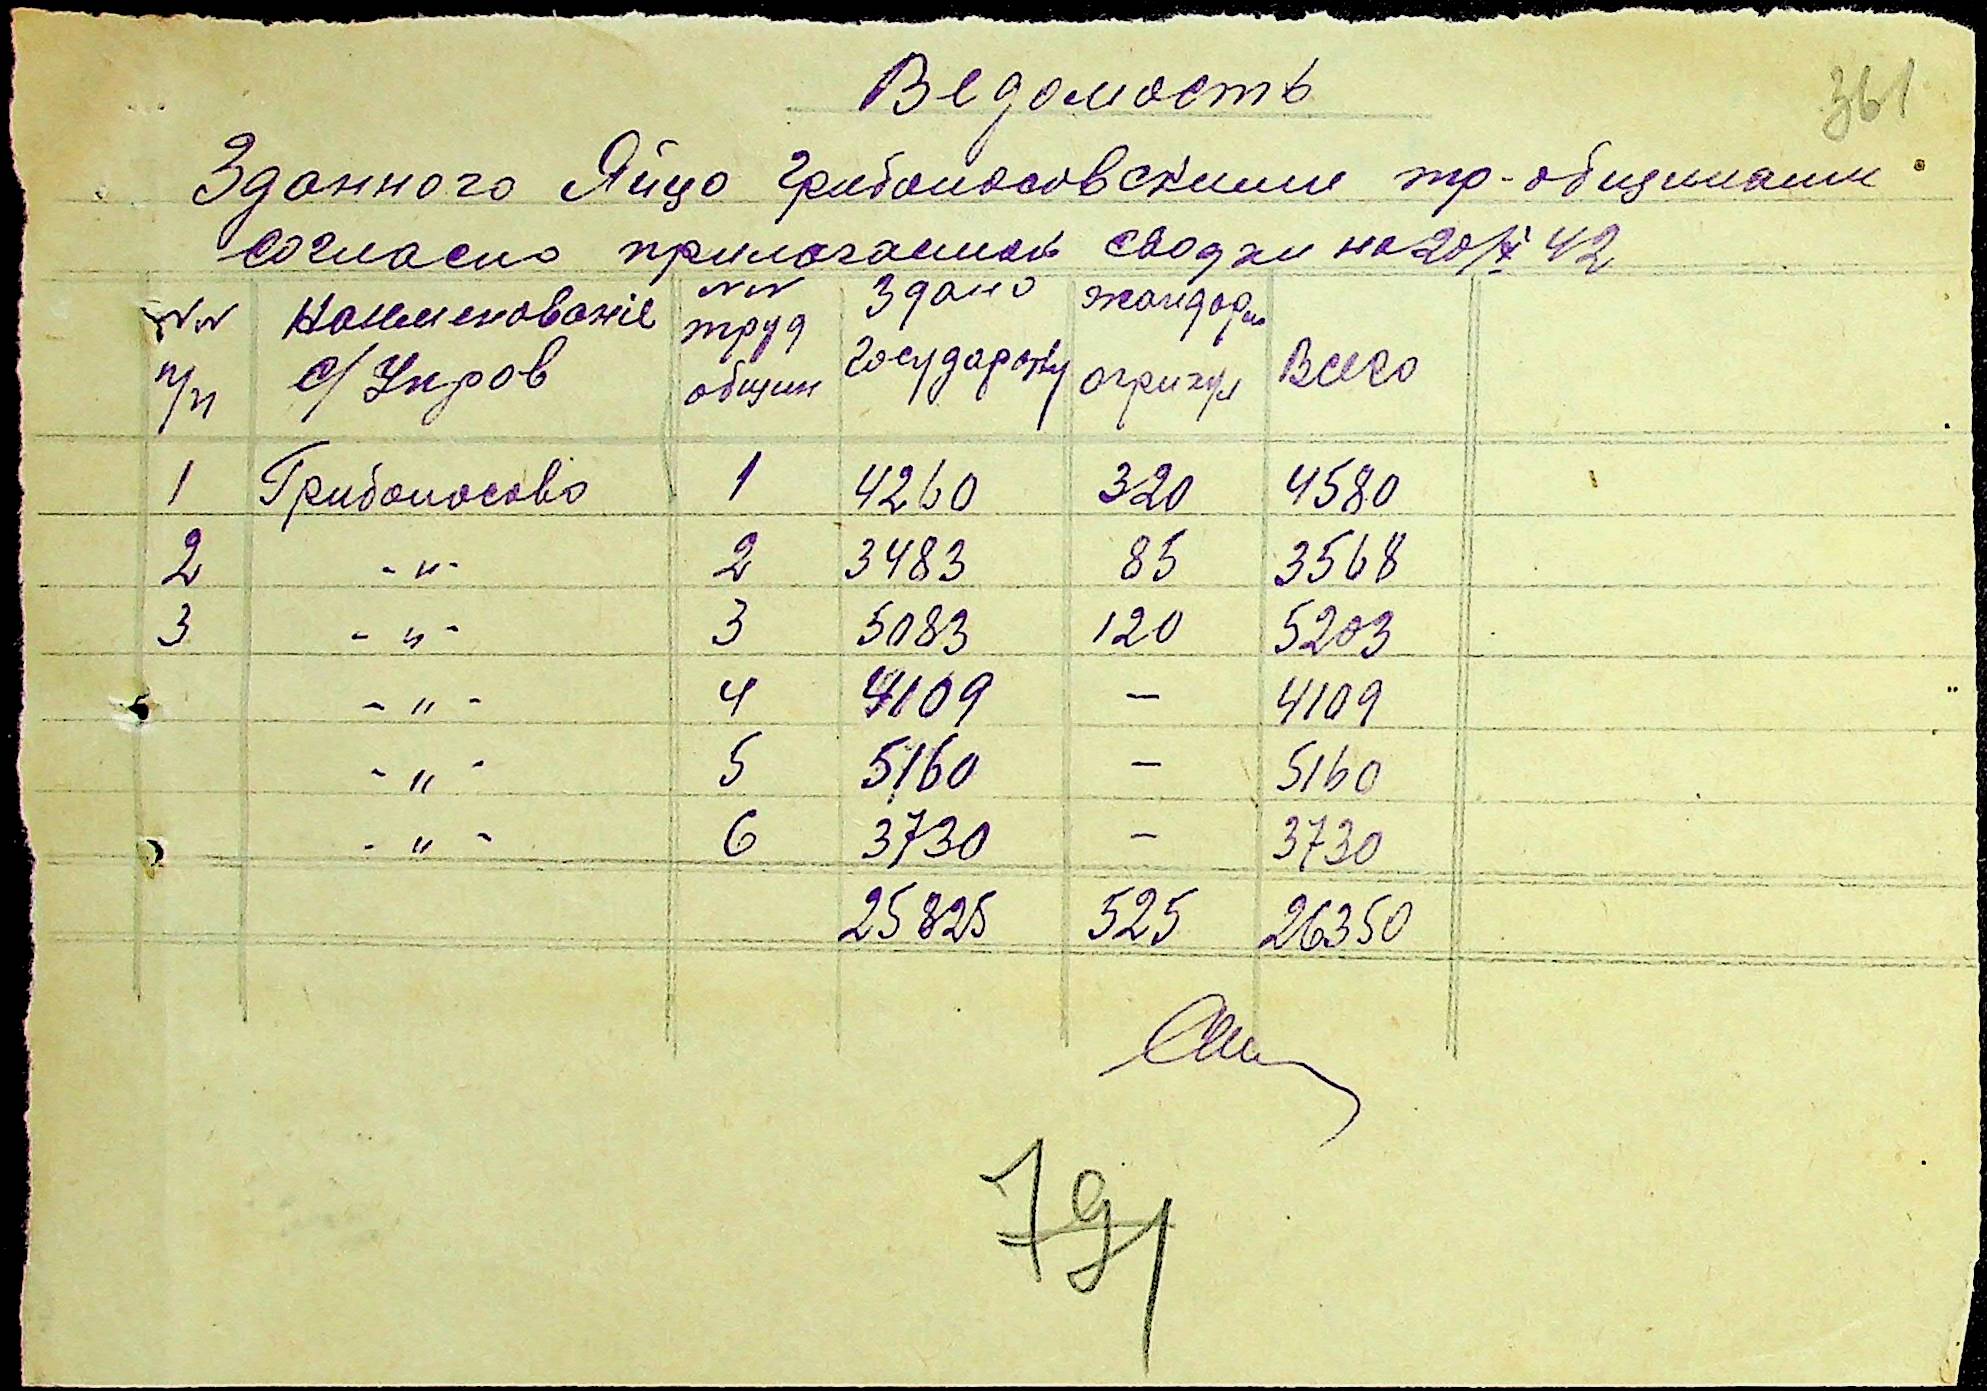 361
Ведомость
Зданного Яйцо Грибоносовскими тр-общинами
согласно прилагаемой сводки на 20/X 42
№№ п/п | Наименование с/Упров | №№ труд общин | Здано Государству | жандар агрикул | Всего
1 | Грибоносово | 1 | 4260 | 320 | 4580
2 | -"- | 2 | 3483 | 85 | 3568
3 | -"- | 3 | 5083 | 120 | 5203
-"- | 4 | 4109 | — | 4109
-"- | 5 | 5160 | — | 5160
-"- | 6 | 3730 | — | 3730
25825 | 525 | 26350